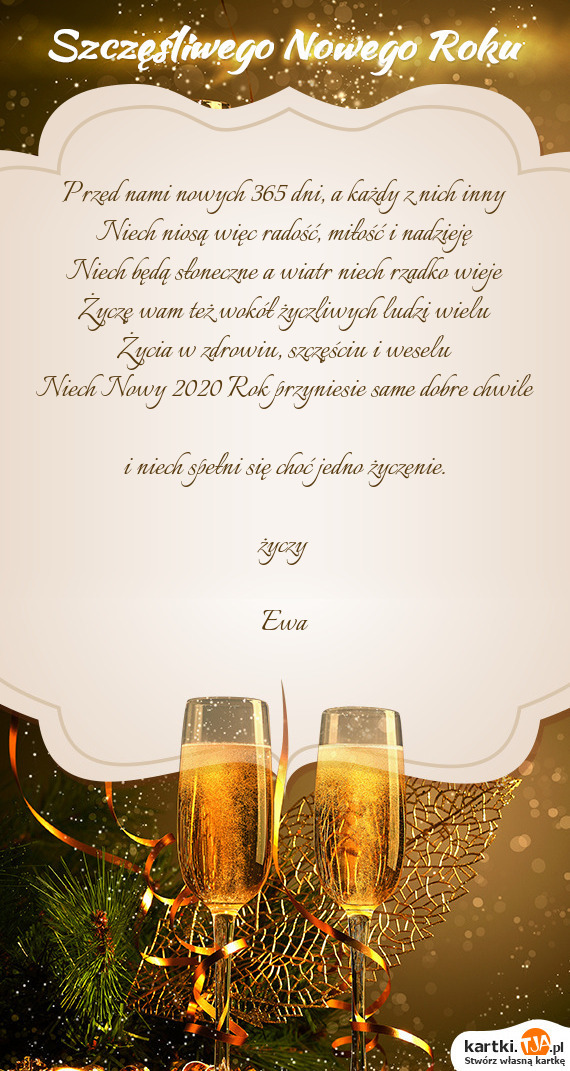 Szczęśliwego Nowego Roku
Przed nami nowych 365 dni, a każdy z nich inny
Niech niosą więc radość, miłość i nadzieję
Niech będą słoneczne a wiatr niech rzadko wieje
Życzę wam też wokół życzliwych ludzi wielu
Życia w zdrowiu, szczęściu i weselu
Niech Nowy 2020 Rok przyniesie same dobre chwile
i niech spełni się choć jedno życzenie.
życzy
Ewa
kartki.TJA.pl
Stwórz własną kartkę